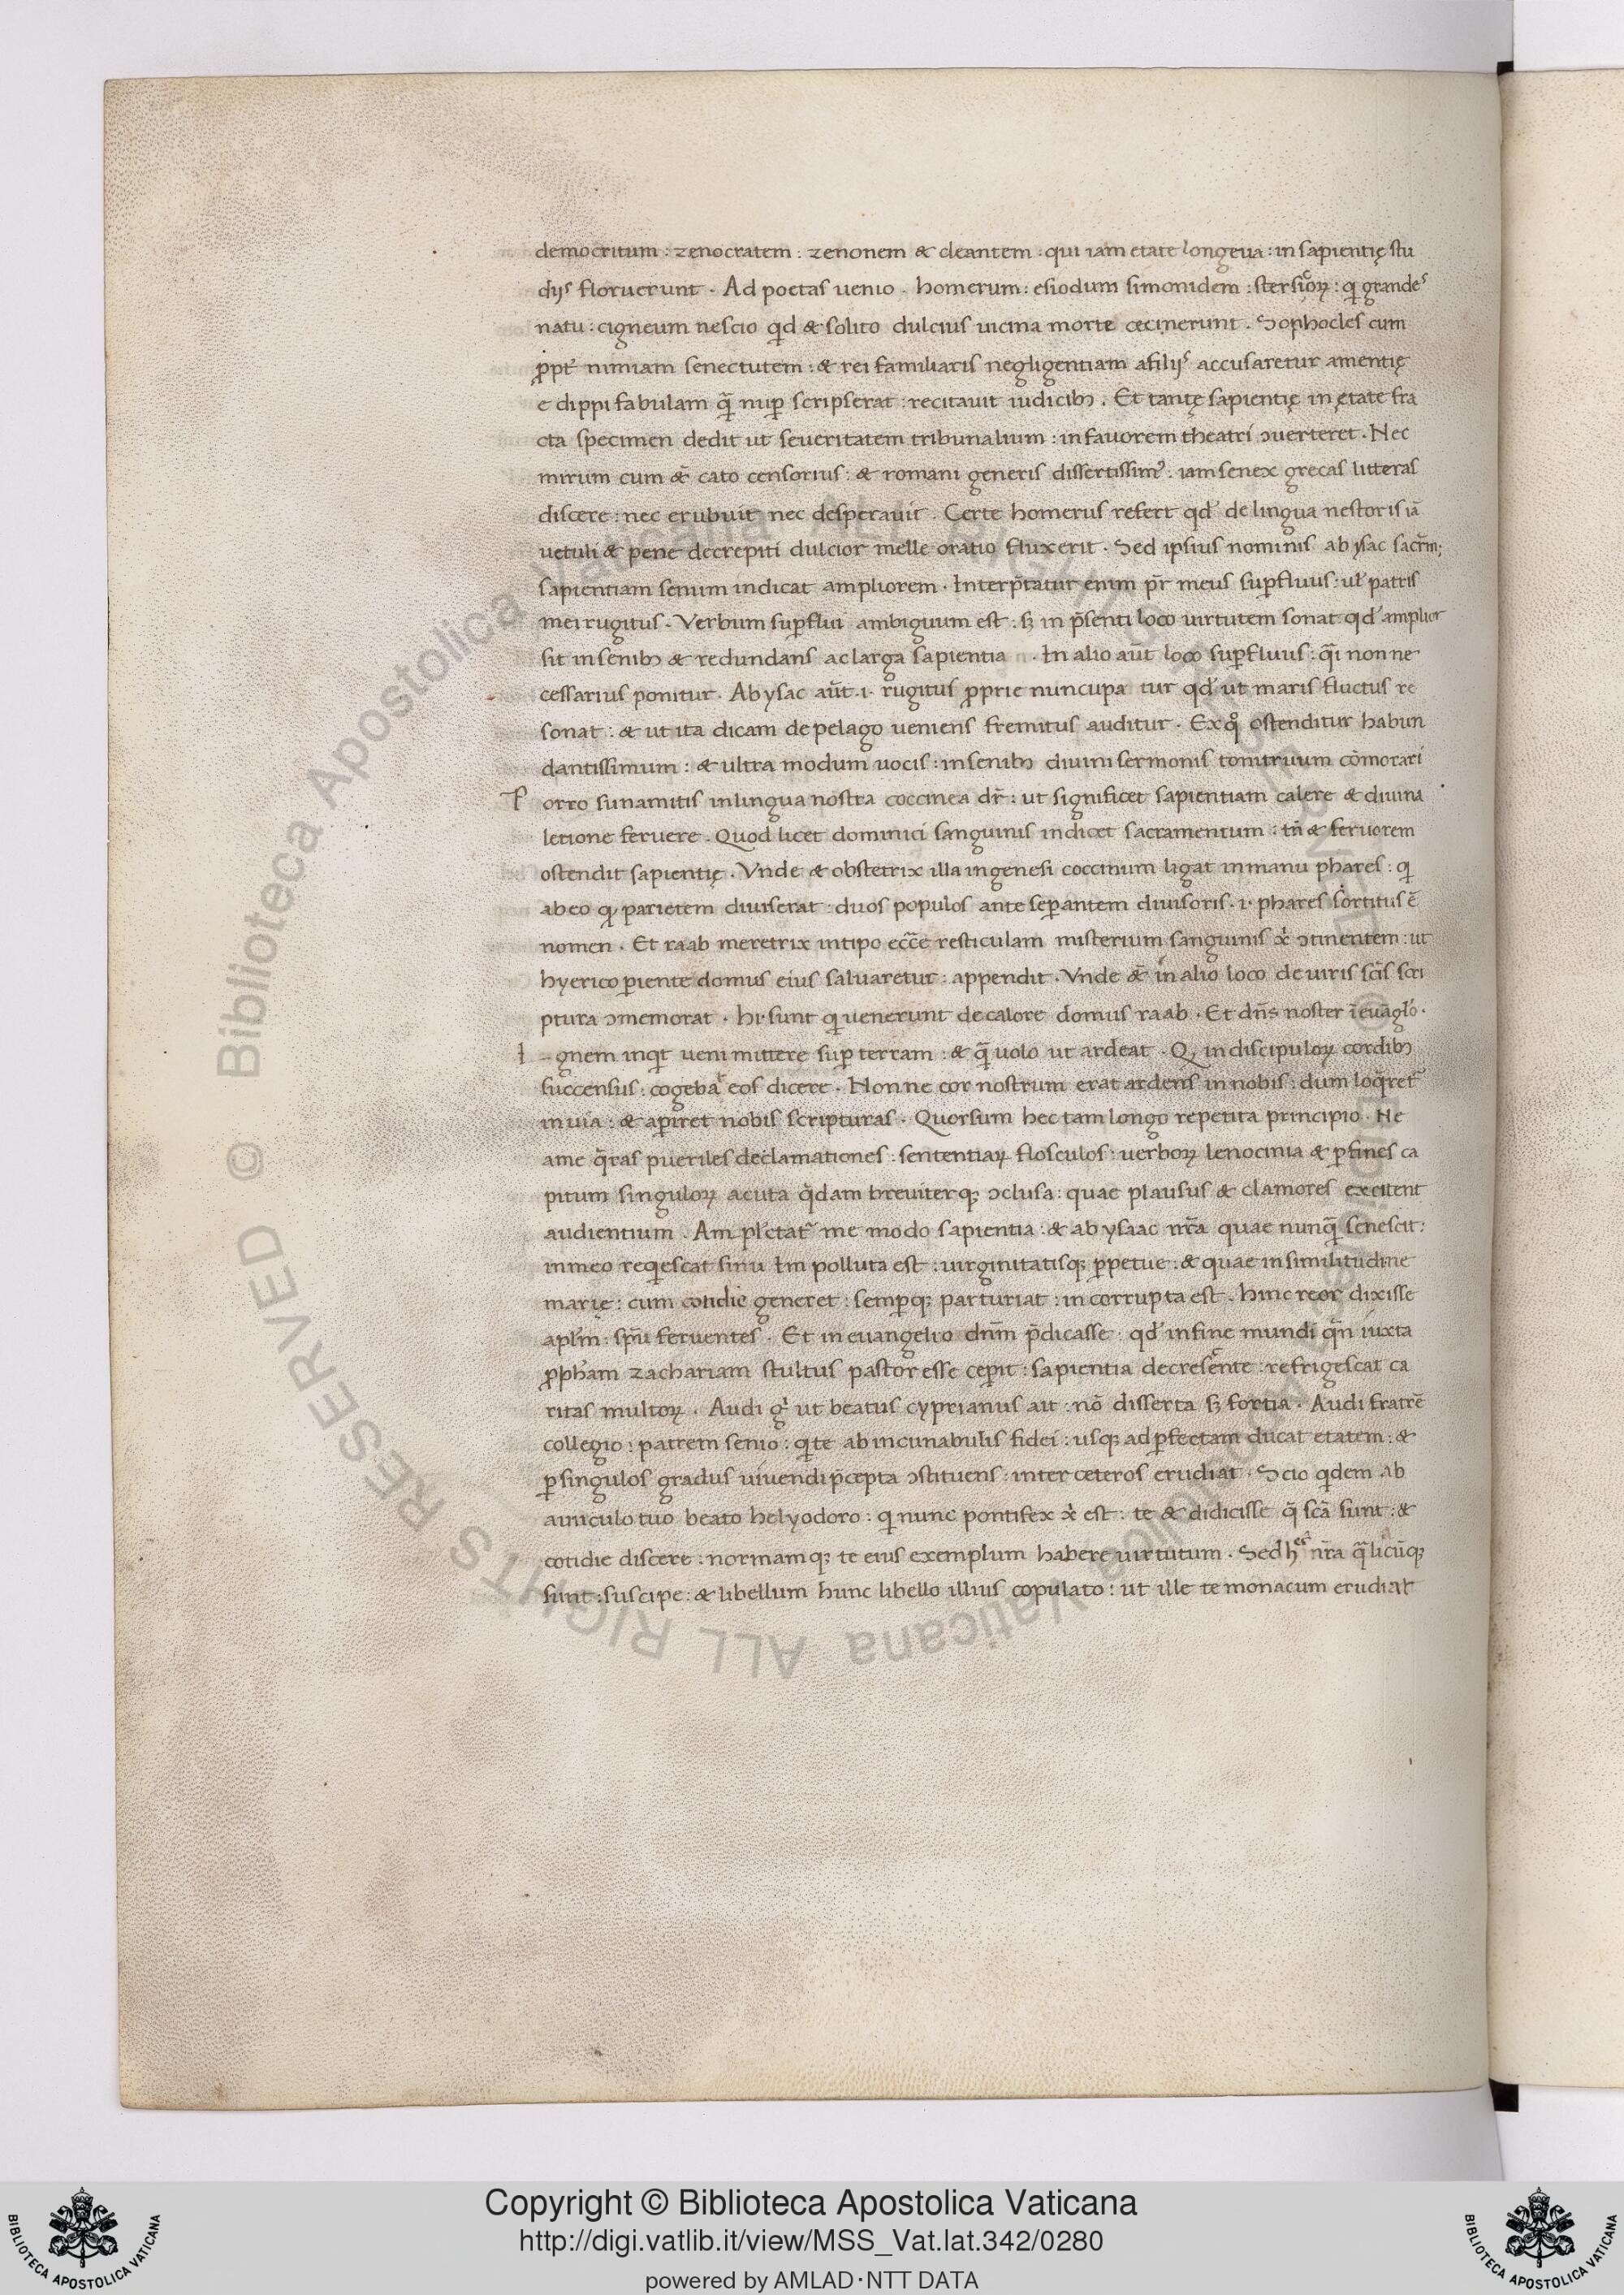 democritum : zenocratem : zenonem & cleantem : qui iam etate longeua : in sapientię stu
dijs floruerunt . Ad poetas uenio . homerum : esiodum simonidem : stersicoꝝ : qͥ grandes
natu : cigneum nescio qͥd & solito dulcius uicina morte cecinerunt . Sophocles cum
ꝓpt̄ nimiam senectutem : & rei familiaris negligentiam afilijs accusaretur amentię
edippi fabulam qͣ̄ nuꝑ scripserat : recitauit iudicibꝫ . Et tantę sapientię in ętate fra
cta specimen dedit ut seueritatem tribunalium : in fauorem theatri ɔuerteret . Nec
mirum cum &̄ cato censorius : & romani generis dissertissimꝰ . iam senex grecas litteras
discere : nec erubuit nec desperauit . Certe homerus refert qd̓ de lingua nestoris iā
uetuli & pene decrepiti dulcior melle oratio fluxerit . Sed ipsius nominis abysac sacr̄m;
sapientiam senum indicat ampliorem . Interp̄tatur enim pr̄ meus suꝑfluus : ul̓ patris
mei rugitus . Verbum suꝑflui ambiguum est . sꝫ in p̄senti loco uirtutem sonat qd̓ amplior
sit in senibꝫ & redundans ac larga sapientia . In alio aūt loco suꝑfluus : qͣ̄i non ne
cessarius ponitur . Abysac aūt .i. rugitus ꝓprie nuncupa tur qd̓ ut maris fluctus re
sonat : & ut ita dicam de pelago ueniens fremitus auditur . Ex qͦ ostenditur habun
dantissimum : & ultra modum uocis : in senibꝫ diuini sermonis tonitruum cōmorari
P orro sunamitis in lingua nostra coccinea dr̄ : ut significet sapientiam calere & diuina
letione feruere . Quod licet dominici sanguinis indicet sacramentum : tn̄ & feruorem
ostendit sapientię . Vnde & obstetrix illa in genesi coccinum ligat in manu phares : qͥ
ab eo qꝫ parietem diuiserat : duos populos ante seꝑantem diuisoris .i. phares sortitus ē
nomen . Et raab meretrix in tipo ecc̄e resticulam misterium sanguinis xp̄i ɔtinentem : ut
hyerico ꝑiente domus eius saluaretur : appendit . Vnde &̄ in alio loco de uiris scīs scri
ptura ɔmemorat . hi sunt qͥ uenerunt de calore domus raab . Et dn̄s noster ī euāgło .
I gnem inqͥt ueni mittere suꝑ terram : & qͣ̄ uolo ut ardeat . Qꝫ in discipuloꝝ cordibꝫ
succensus : cogebat eos dicere . Nonne cor nostrum erat ardens in nobis : dum loqͣret̄
in uia : & aꝑiret nobis scripturas . Quorsum hec tam longo repetita principio . Ne
ame qͣ̄ras pueriles declamationes : sententiaꝝ flosculos : uerboꝝ lenocinia & ꝑ fines ca
pitum singuloꝝ acuta qͣ̄dam breuiterqꝫ ɔclusa : quae plausus & clamores excitent
audientium . Amplectat̄ me modo sapientia : & abysaac nr̄a quae nunqͣ̄ senescit :
in meo reqͥescat sinu Im polluta est : uirginitatisqꝫ ꝑpetue : & quae in similitudine
marię : cum cotidie generet : semꝑqꝫ parturiat : in corrupta est . hinc reor dixisse
apl̄m : spū feruentes . Et in euangelio dn̄m p̄dicasse qd̓ in fine mundi qn̄ iuxta
ꝓpham zachariam stultus pastor esse ceꝑit : sapientia decresc̄ente : refrigescat ca
ritas multoꝝ . Audi gͥ ut beatus cyprianus ait : nō disserta sꝫ fortia . Audi fratrē
collegio : patrem senio : qͥ te ab incunabulis fidei : usqꝫ ad ꝑfectam ducat etatem : &
ꝑ singulos gradus uiuendi p̄cepta ɔstituens : inter ceteros erudiat . Scio qͥdem ab
auuculo tuo beato helyodoro : qͥ nunc pontifex xp̄i est : te & didicisse q̄ scā sunt : &
cotidie discere : normamqꝫ te eius exemplum habere uirtutum . Sed h&̄ nr̄a qͣ̄licūqꝫ
sunt : suscipe : & libellum hunc libello illius copulato : ut ille te monacum erudiat
Copyright © Biblioteca Apostolica Vaticana
http://digi.vatlib.it/view/MSS_Vat.lat.342/0280
powered by AMLAD·NTT DATA
BIBLIOTECA APOSTOLICA VATICANA
BIBLIOTECA APOSTOLICA VATICANA